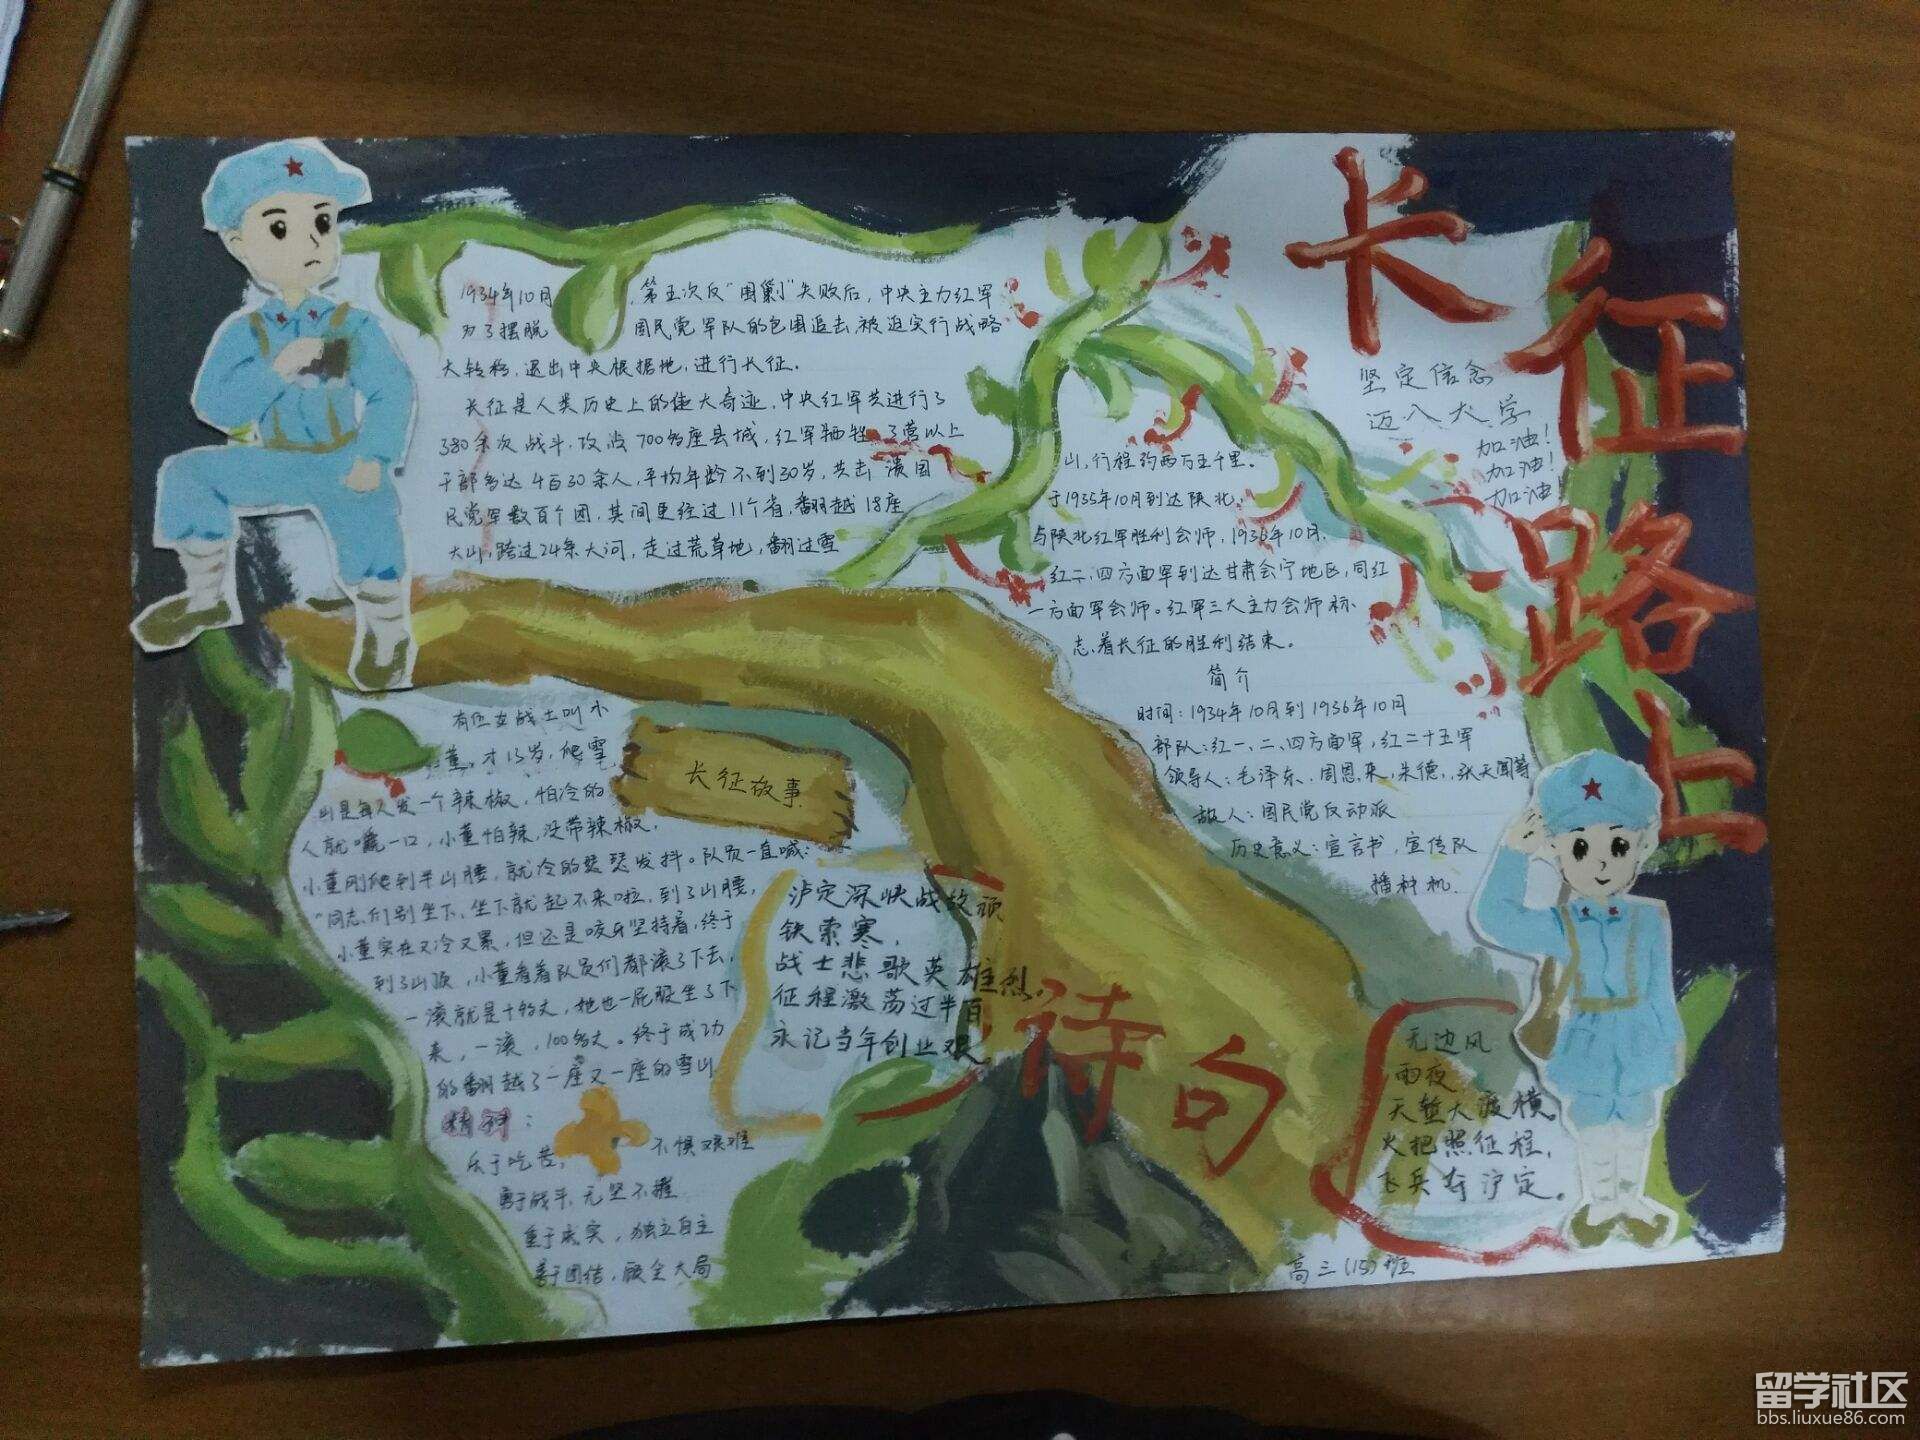 长征路上
1934年10月,第五次反“围剿”失败后,中央主力红军
为了摆脱国民党军队的包围追击,被迫实行战略
大转移,退出中央根据地,进行长征。
长征是人类历史上的伟大奇迹,中央红军共进行了
380余次战斗,攻占700多座县城,红军牺牲了营以上
干部多达4百30余人,平均年龄不到30岁,共击溃国
民党军数百个团,其间更经过11个省,翻越18座
大山,跨过24条大河,走过荒草地,翻过雪
山,行程约两万五千里。
于1935年10月到达陕北,
与陕北红军胜利会师,1936年10月,
红二、四方面军到达甘肃会宁地区,同红
一方面军会师。红军三大主力会师标
志着长征的胜利结束。
坚定信念
迈入大学
加油!
加油!
加油!
简介
时间:1934年10月到1936年10月
部队:红一、二、四方面军,红二十五军
领导人:毛泽东、周恩来,朱德,张天闻等
敌人:国民党反动派
历史意义:宣言书,宣传队
播种机.
长征故事
有位女战士叫小
董,才13岁,爬雪
山是每人发一个辣椒,怕冷的
人就嘴一口,小董怕辣,没带辣椒,
小董刚爬到半山腰,就冷的瑟瑟发抖。队员一直喊:
“同志们别坐下,坐下就起不来啦,到了山腰,
小董实在又冷又累,但还是咬牙坚持着,终于
到了山顶,小董看着队员们都滚了下去,
一滚就是十约丈,她也一屁股坐了下
来,一滚,100多丈。终于成功
的翻越了一座又一座的雪山
精神:
乐于吃苦,不惧艰难
勇于战斗,无坚不摧
重于求实,独立自主
善于团结,顾全大局
诗句
泸定深快战故顽
铁索寒,
战士悲歌英雄烈,
征程激荡过半百
永记当年创业艰
无边风
雨夜
天堑大渡横,
火把照征程,
飞兵夺泸定。
高三(15)班
留学社区
bbs.liuxue86.com